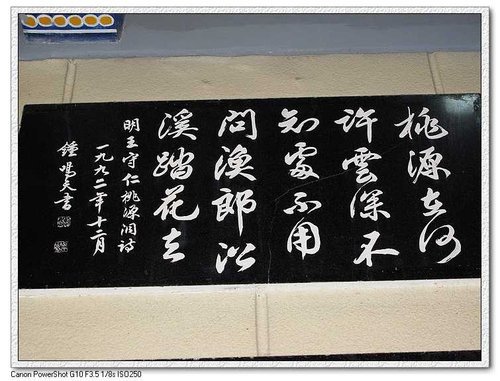 桃源在何
許雲深不
知處不用
問漁郎沿
溪踏花去
明王守仁桃源洞詩
一九九二年十二月
鍾鳴天書
Canon PowerShot G10 F3.5 1/8s ISO250